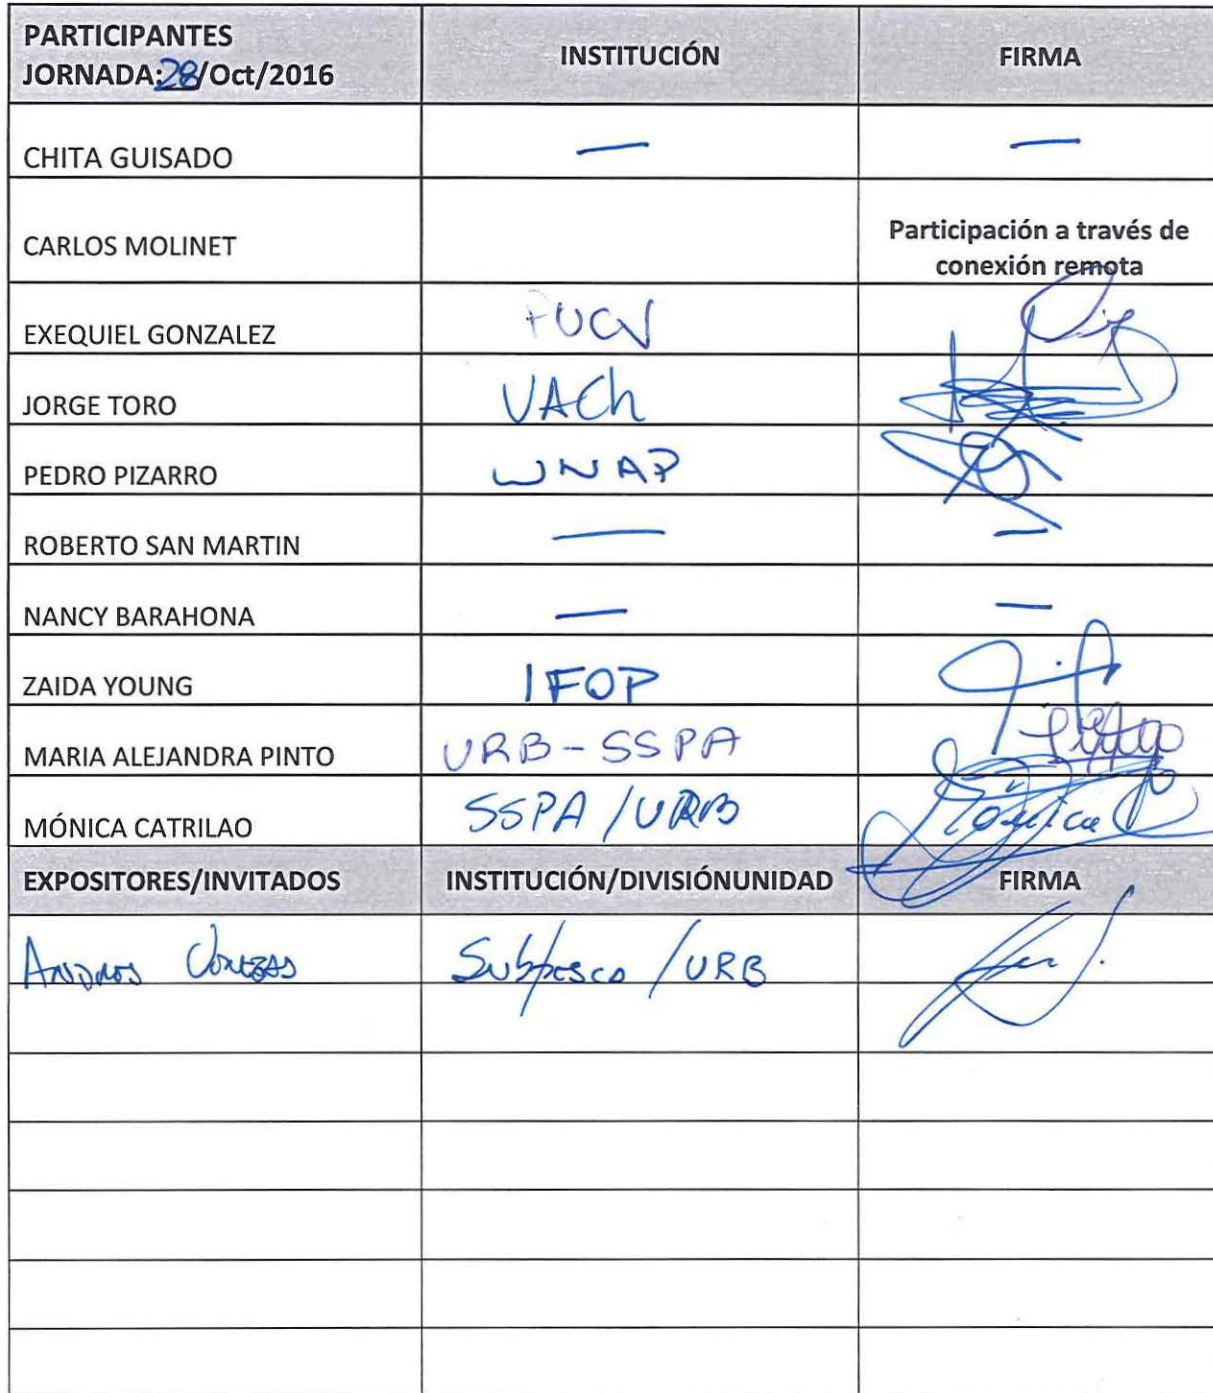 PARTICIPANTES INSTITUCIÓN FIRMA
JORNADA:28/Oct/2016
CHITA GUISADO — —
CARLOS MOLINET Participación a través de
conexión remota
EXEQUIEL GONZALEZ PUCV
JORGE TORO UACh
PEDRO PIZARRO UNAP
ROBERTO SAN MARTIN — —
NANCY BARAHONA — —
ZAIDA YOUNG IFOP
MARIA ALEJANDRA PINTO URB-SSPA
MÓNICA CATRILAO SSPA/URB Mónica
EXPOSITORES/INVITADOS INSTITUCIÓN/DIVISIÓNUNIDAD FIRMA
Subpesca/URB